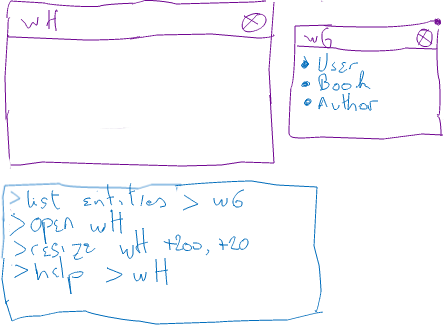 wH
wG
User
Book
Author
>list entities > wG
>open wH
>resize wH +200, +20
>help > wH